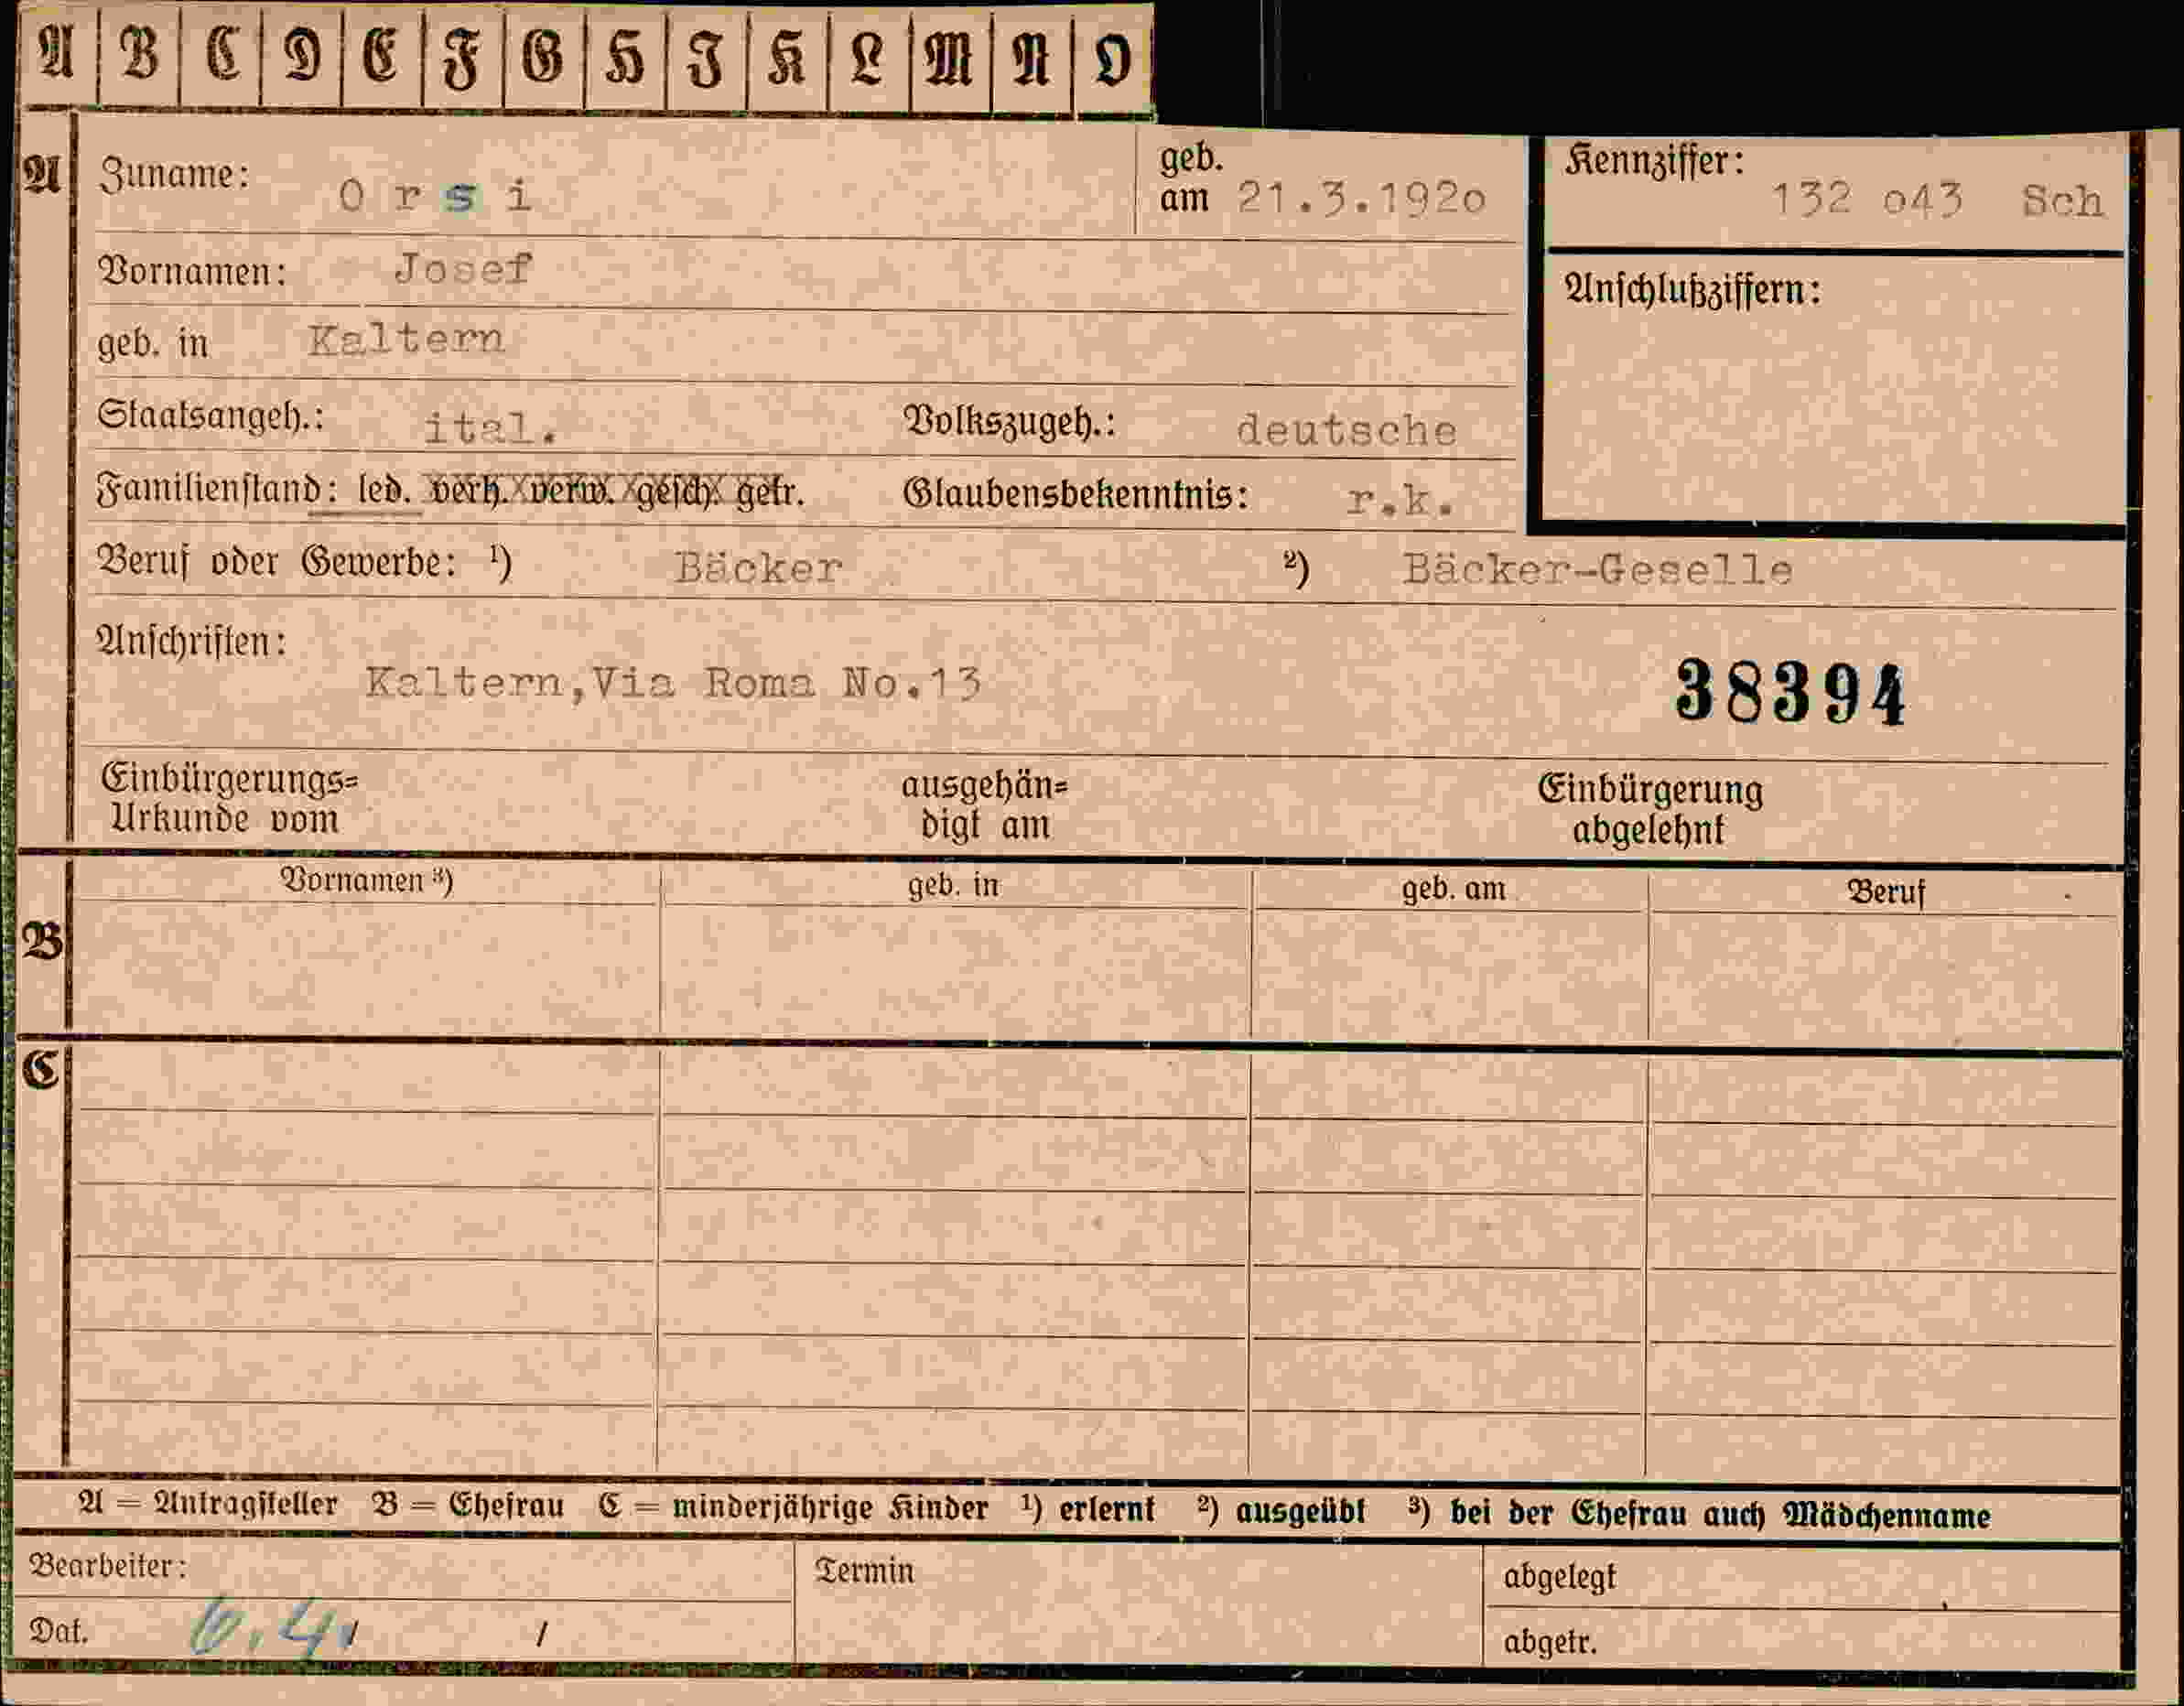 A B C D E F G H I K L M N O
A Zuname: O r s i geb. am 21.3.192o Kennziffer: 132 o43 Sch
Vornamen: Josef Anschlußziffern:
geb. in Kaltern
Staatsangeh.: ital. Volkszugeh.: deutsche
Familienstand: led. verh. verw. gesch. getr. Glaubensbekenntnis: r.k.
Beruf oder Gewerbe: ¹) Bäcker ²) Bäcker-Geselle
Anschriften:
Kaltern,Via Roma No.13 38394
Einbürgerungs= ausgehän= Einbürgerung
Urkunde vom digt am abgelehnt
Vornamen ³) geb. in geb. am Beruf
B
C
A = Antragsteller B = Ehefrau C = minderjährige Kinder ¹) erlernt ²) ausgeübt ³) bei der Ehefrau auch Mädchenname
Bearbeiter: Termin abgelegt
Dat. 6.4. / / abgetr.